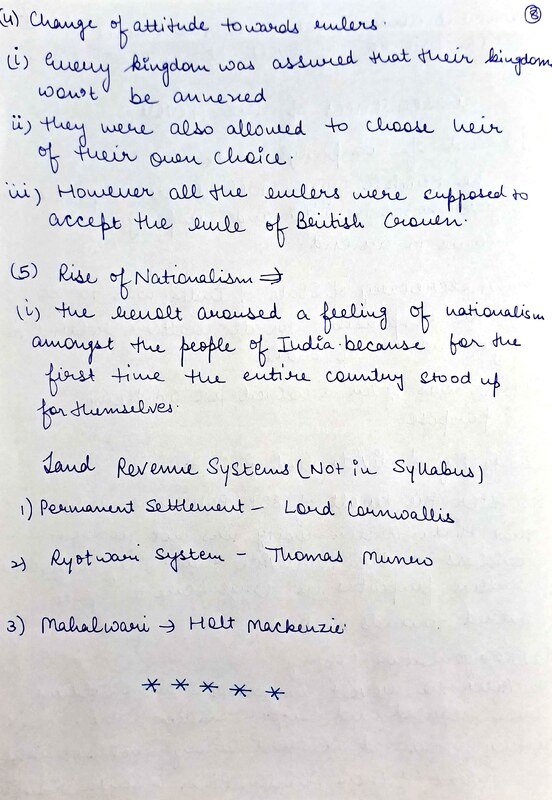 (4) Change of attitude towards rulers. (8)
(i) Every kingdom was assured that their kingdom
won't be annexed
ii) They were also allowed to choose heir
of their own choice.
iii) However all the rulers were supposed to
accept the rule of British Crown.
(5) Rise of Nationalism ⇒
(i) The revolt aroused a feeling of nationalism
amongst the people of India because for the
first time the entire country stood up
for themselves.
Land Revenue Systems (Not in Syllabus)
1) Permanent Settlement - Lord Cornwallis
2) Ryotwari System - Thomas Munro
3) Mahalwari → Holt Mackenzie.
* * * * *